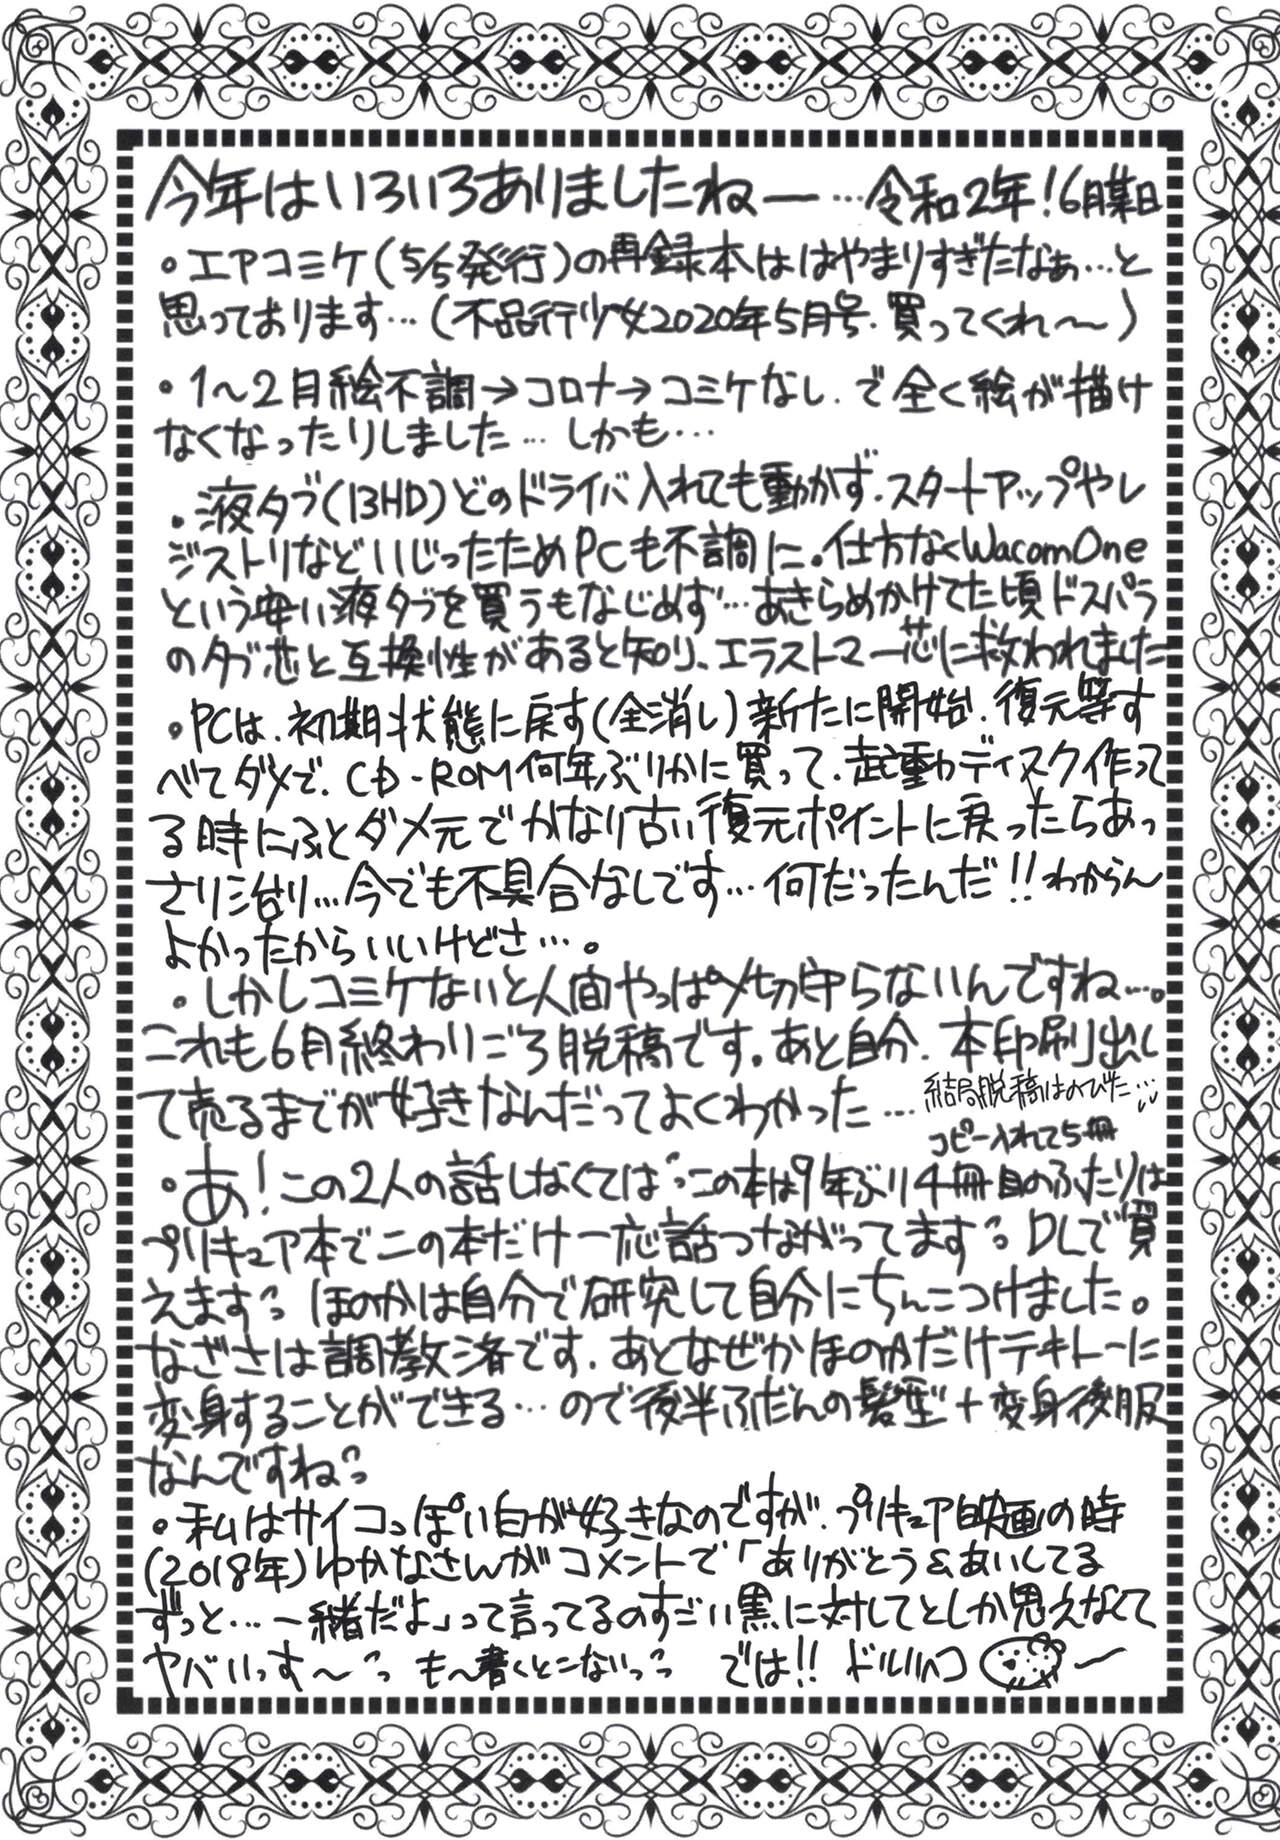 今年はいろいろありましたねー…令和2年!6月某日
・エアコミケ(5/5発行)の再録本ははやまりすぎたなぁ…と
思っております…(不品行少女2020年5月号.買ってくれ〜)
・1〜2月絵不調→コロナ→コミケなし.で全く絵が描け
なくなったりしました… しかも…
・液タブ(13HD)どのドライバ入れても動かず.スタートアップやレ
ジストリなどいじったためPCも不調に。仕方なくWacomOne
という安い液タブを買うもなじめず…あきらめかけてた頃ドスパラ
のタブ芯と互換性があると知り、エラストマー芯に救われました
・PCは、初期状態に戻す(全消し)新たに開始.復元等す
べてダメで.CD-ROM何年ぶりかに買って.起動ディスク作って
る時にふとダメ元でかなり古い復元ポイントに戻ったらあっ
さり治り…今でも不具合なしです…何だったんだ!!わからん
よかったからいいけどさ…。
・しかしコミケないと人間やっぱ〆切守らないんですね…。
これも6月終わりごろ脱稿です。あと自分.本印刷り出し
て売るまでが好きなんだってよくわかった…
結局脱稿はのびた…
コピー入れて5冊
・あ!この2人の話しなくては この本は9年ぶり4冊目のふたりは
プリキュア本でこの本だけ一応話つながってます DLで買
えます
あとなぜかほのかだけテキトーに
変身することができる…ので後半ふだんの髪型+変身後服
なんですね
・私はサイコっぽい白が好きなのですが.プリキュア映画の時
(2018年)ゆかなさんがコメントで「ありがとう&あいしてる
ずっと…一緒だよ」って言ってるのすごい黒に対してとしか思えなくて
ヤバいっす〜 も〜書くとこないっ では!! ドルハコ